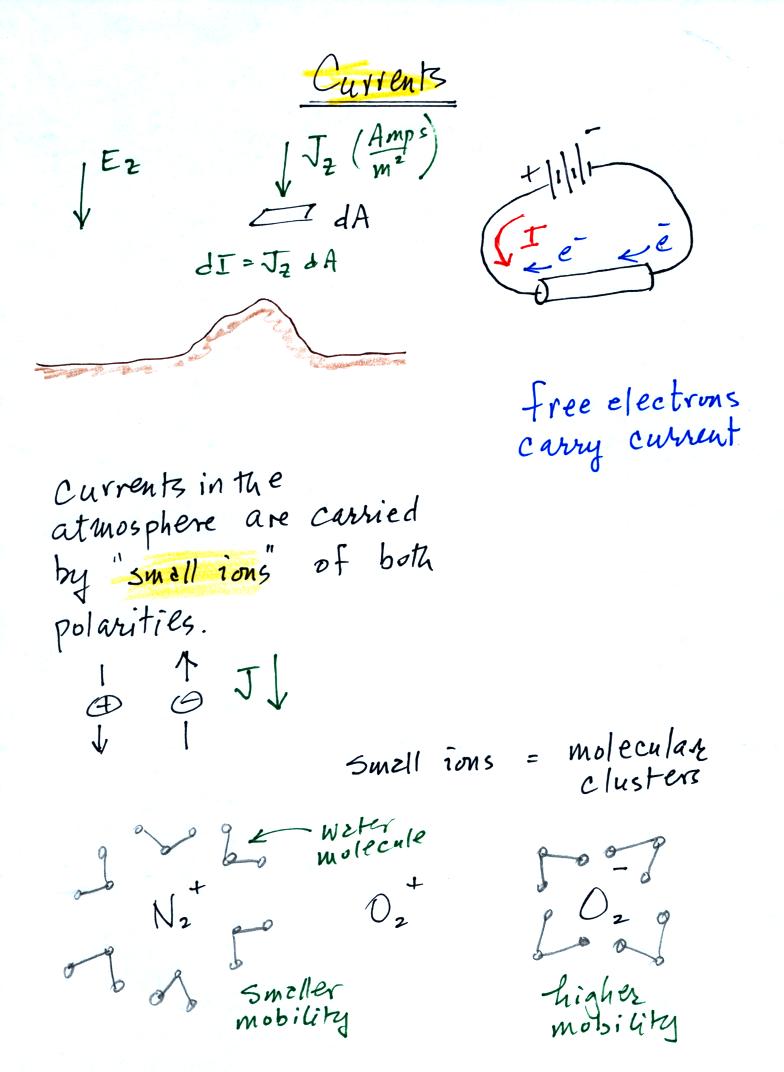 Currents
E_z
J_z (Amps/m²)
dA
dI = J_z dA
+ -
I
e⁻ e⁻
free electrons
carry current
Currents in the
atmosphere are carried
by "small ions" of both
polarities.
+ - J
small ions = molecular
clusters
water
molecule
N₂⁺
O₂⁺
O₂⁻
smaller
mobility
higher
mobility